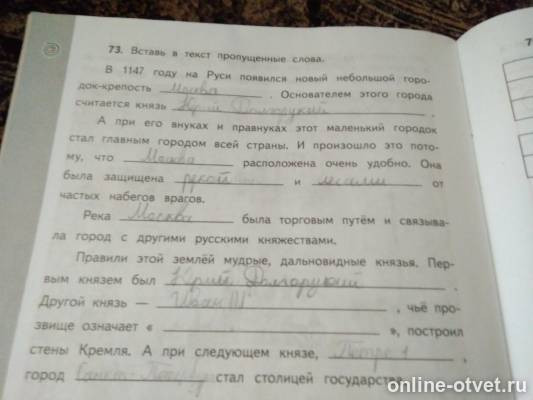 73. Вставь в текст пропущенные слова.
В 1147 году на Руси появился новый небольшой горо-
док-крепость Москва. Основателем этого города
считается князь Юрий Долгорукий.
А при его внуках и правнуках этот маленький городок
стал главным городом всей страны. И произошло это пото-
му, что Москва расположена очень удобно. Она
была защищена рекой и лесами от
частых набегов врагов.
Река Москва была торговым путём и связыва-
ла город с другими русскими княжествами.
Правили этой землёй мудрые, дальновидные князья. Пер-
вым князем был Юрий Долгорукий.
Другой князь — Иван III, чьё про-
звище означает « », построил
стены Кремля. А при следующем князе, Петре 1,
город Санкт-Петербург стал столицей государства
7
online-otvet.ru